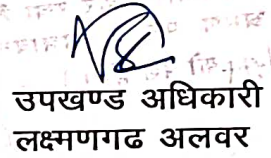 उपखण्ड अधिकारी
लक्ष्मणगढ अलवर